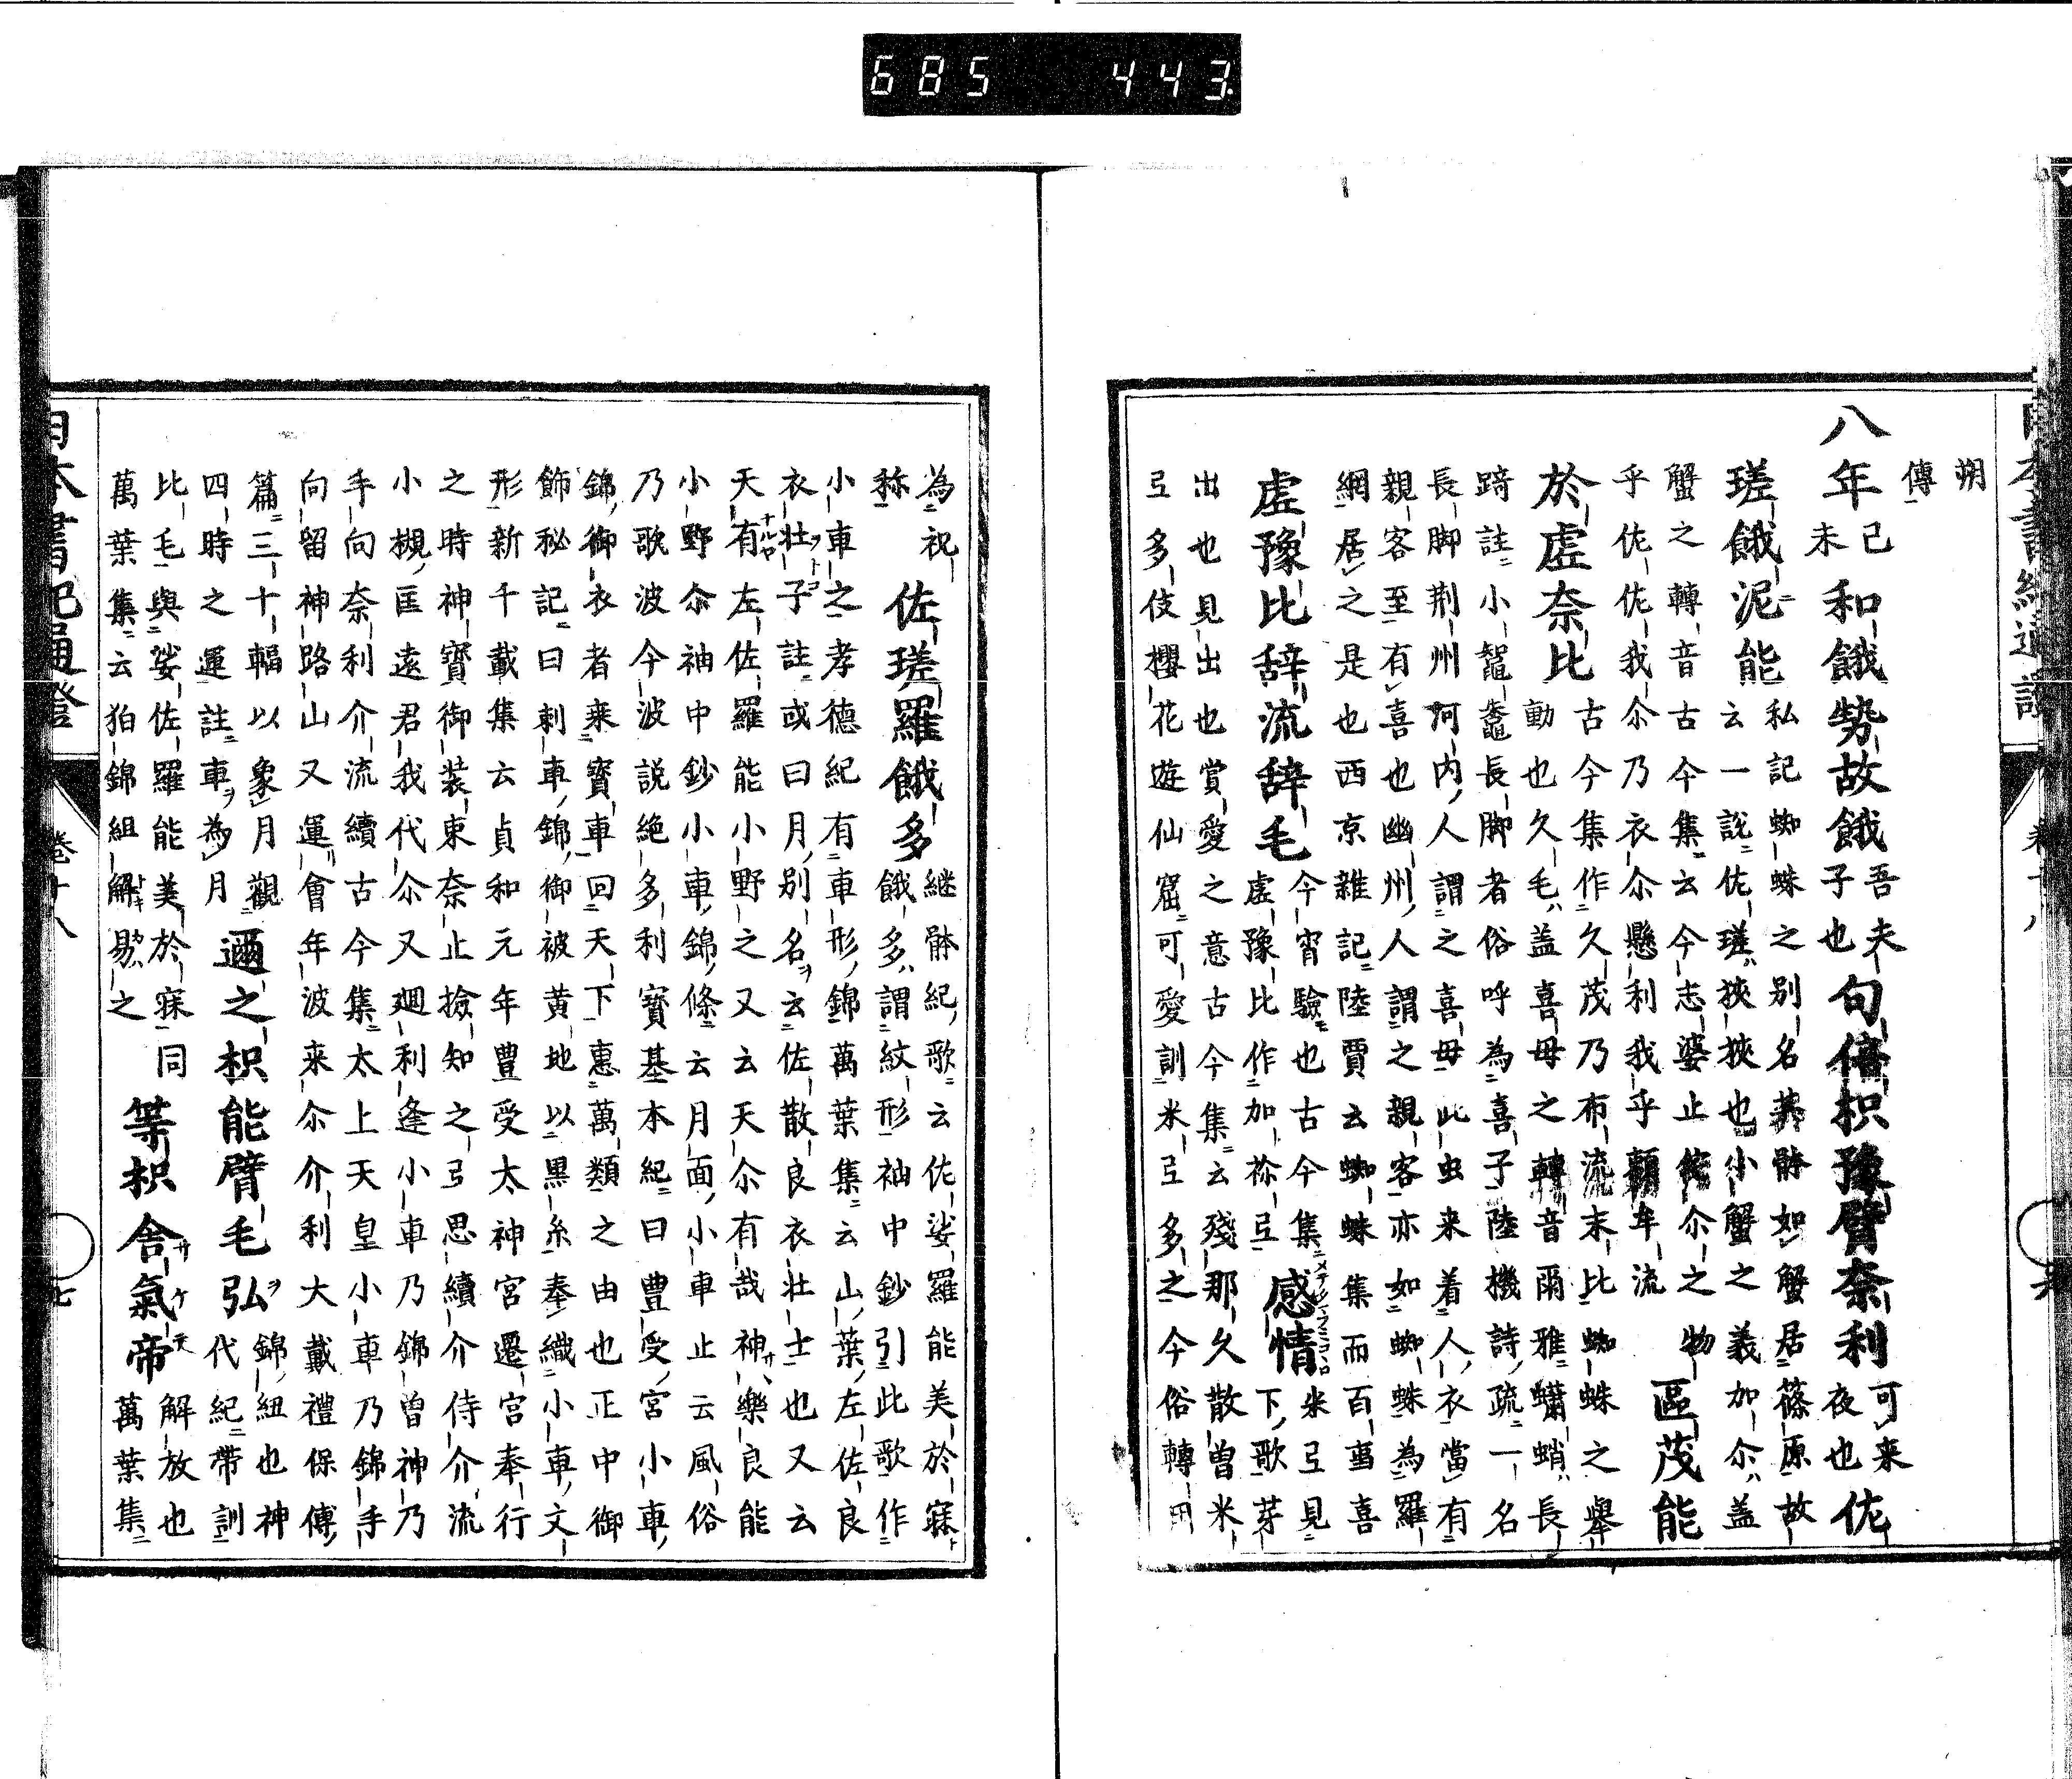 685 443
朔
傳
八年己未和餓勢故餓吾夫子也句倍枳豫臂奈利可来夜也佐
瑳餓泥能私記蜘蛛之別名其體如蟹居篠原故
云一説佐瑳狹狹也小蟹之義加尒盖
蟹之轉音古今集云今志婆止侘尒之物
乎佐佐我尒乃衣尒懸利我乎頼牟流區茂能
於虚奈比古今集作久茂乃布流末比蜘蛛之舉
動也久毛盖喜母之轉音爾雅蠨蛸長
踦註小鼅鼄長脚者俗呼為喜子陸機詩疏一名
長脚荆州河内人謂之喜母此虫来着人衣當有
親客至有喜也幽州人謂之親客亦如蜘蛛為羅
網居之是也西京雜記陸賈云蜘蛛集而百事喜
虚豫比辭流辭毛今宵驗也古今集
虚豫比作加祢弖感情米弖見
下歌芽
出也見出也賞愛之意古今集云殘那久散曽米
弖多伎櫻花遊仙窟可愛訓米弖多之今俗轉用
為祝
称佐瑳羅餓多継躰紀歌云佐娑羅能美於寐
餓多謂紋形袖中鈔引此歌作
小車之孝德紀有車形錦萬葉集云山葉左佐良
衣壮子註或曰月別名云佐散良衣壮士也又云
天有左佐羅能小野之又云天尒有哉神樂良能
小野尒袖中鈔小車錦條云月面小車止云風俗
乃歌波今波説絶多利寳基本紀曰豊受宮小車
錦御衣者乗寳車回天下惠萬類之由也正中御
飾秘記曰刺車錦御被黄地以黒糸奉織小車文
形新千載集云貞和元年豊受太神宮遷宮奉行
之時神寳御装束奈止撿知之弖思續介侍介流
小槻匡遠君我代尒又廻利逢小車乃錦曽神乃
手向奈利介流續古今集太上天皇小車乃錦手
向留神路山又運會年波来尒介利大戴禮保傳
篇三十輻以象月觀
四時之運註車為月邇之枳能臂毛弘錦紐也神
代紀帶訓
比毛與娑佐羅能美於寐同
萬葉集云狛錦組解易之等枳舎氣帝解放也
萬葉集
日本書紀通證
卷十八